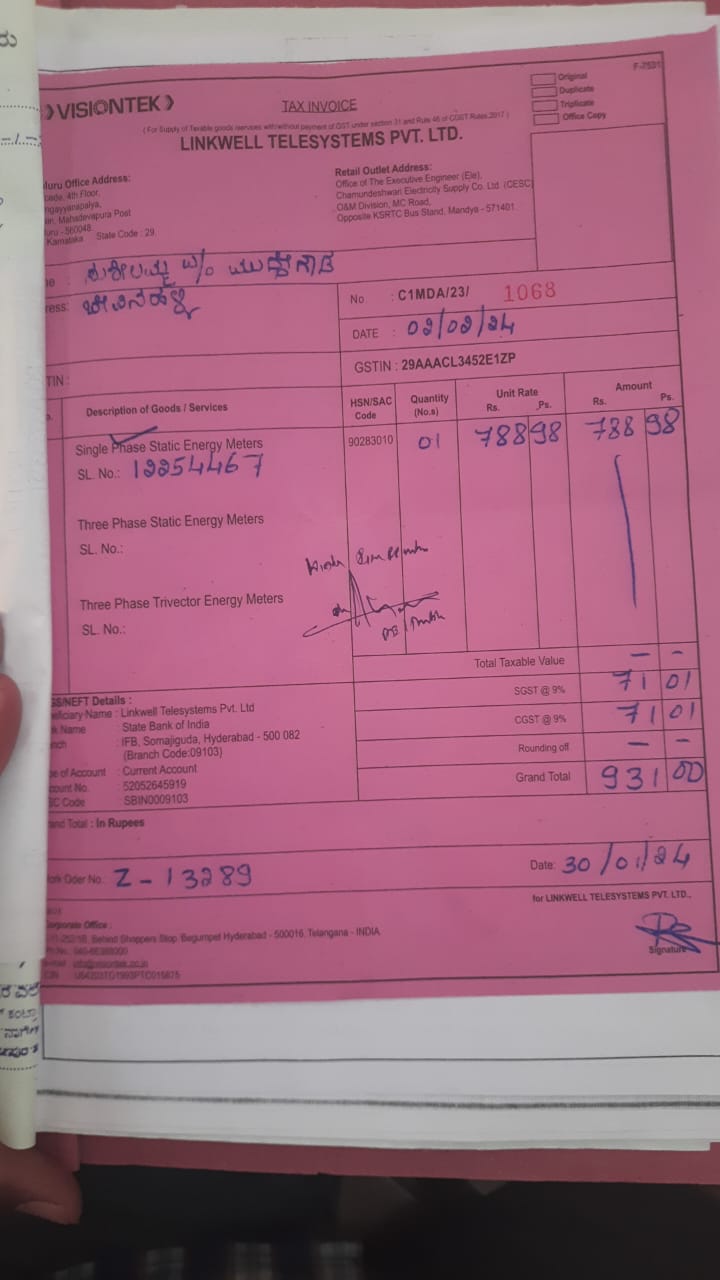 VISIONTEK
TAX INVOICE
F-7531
Original
Duplicate
Triplicate
Office Copy
( For Supply of Taxable goods /services with/without payment of GST under section 31 and Rule 46 of CGST Rules 2017 )
LINKWELL TELESYSTEMS PVT. LTD.
luru Office Address:
4th Floor,
ngayyanapalya,
Mahadevapura Post
luru - 560048
Karnataka State Code : 29
Retail Outlet Address:
Office of The Executive Engineer (Ele),
Chamundeshwari Electricity Supply Co. Ltd. (CESC
O&M Division, MC Road,
Opposite KSRTC Bus Stand, Mandya - 571401
ress:
No : C1MDA/23/ 1068
DATE : 02/02/24
TIN :
GSTIN : 29AAACL3452E1ZP
Description of Goods / Services
HSN/SAC Code
Quantity (No.s)
Unit Rate Rs. Ps.
Amount Rs. Ps.
Single Phase Static Energy Meters 90283010 01 788 98 788 98
SL. No.: 12254467
Three Phase Static Energy Meters
SL. No.:
Three Phase Trivector Energy Meters
SL. No.:
Total Taxable Value — -
SGST @ 9% 71 01
CGST @ 9% 71 01
Rounding off — -
Grand Total 931 00
GS/NEFT Details :
eficiary Name : Linkwell Telesystems Pvt. Ltd
k Name : State Bank of India
nch : IFB, Somajiguda, Hyderabad - 500 082
(Branch Code:09103)
pe of Account : Current Account
count No. : 52052645919
SC Code : SBIN0009103
and Total : In Rupees
ork Oder No. Z - 13289
Date: 30/01/24
for LINKWELL TELESYSTEMS PVT. LTD.,
Signature
Corporate Office :
Behind Shoppers Stop, Begumpet Hyderabad - 500016, Telangana - INDIA
info@visiontek.co.in